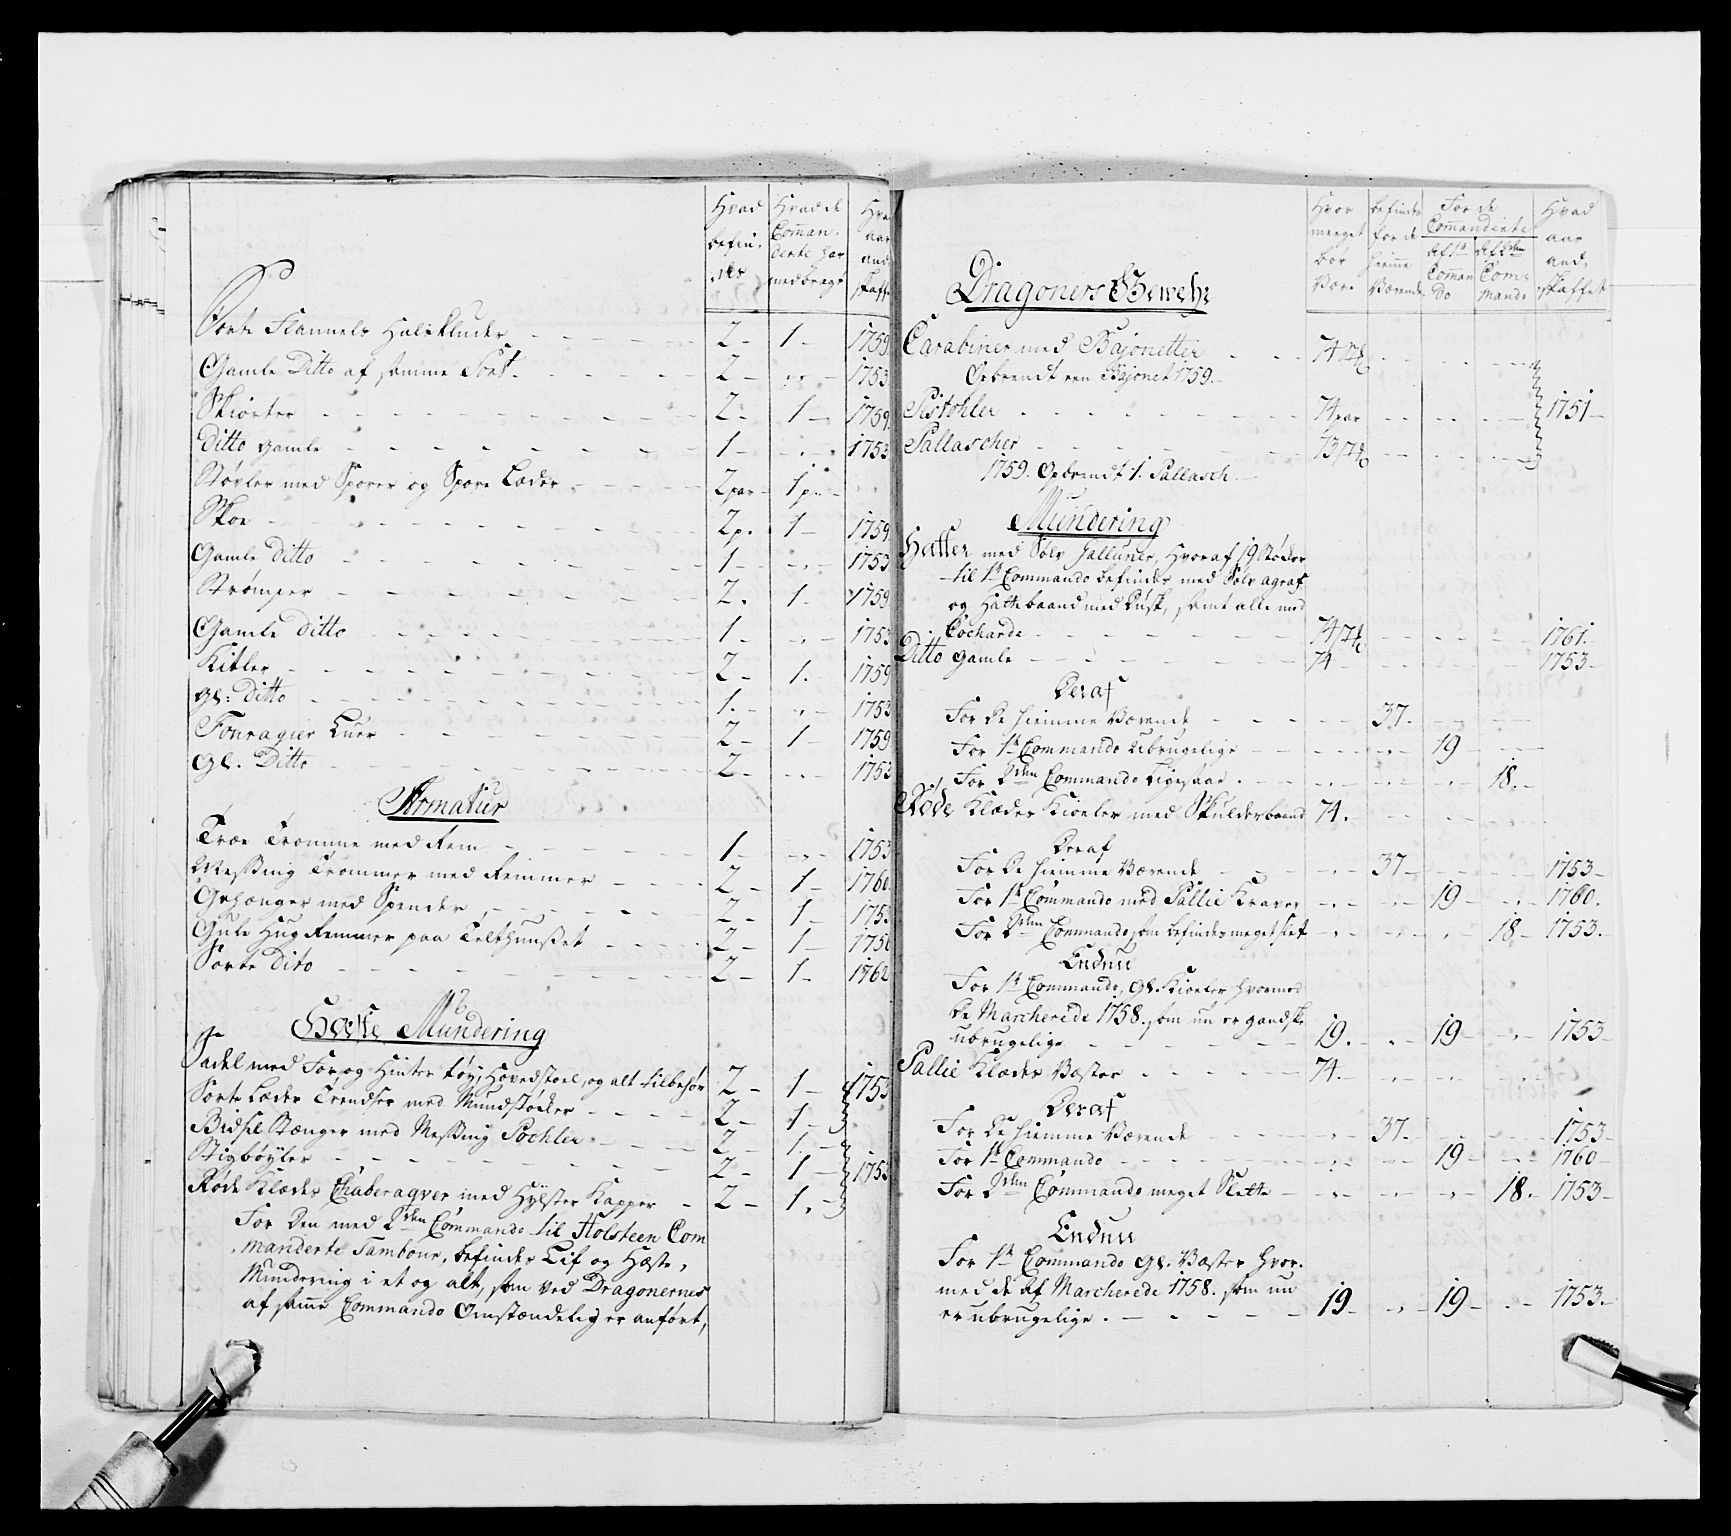 Hvad befin. des | Hvad de Comman. derte har medbragt | Hva aar and skaff
Sorte Flannels Halsklude 2 - 1 - 1759
Gamle Ditto af samme Sort. 2 - „ - 1753
Skiorter 2 - 1 - 1759
Ditto gamle 1 - „ - 1753
Støvler med Sporer og Spore Læder 2 par - 1 p.
Skoe 2 p. 1 - 1759
Gamle Ditto 1 - „ - 1753
Strømper 2. 1. 1759
Gamle Ditto 1. „ 1753
Kitler 2 - 1. 1759
gl: Ditto 1. „ 1753
Fouragier Luer 2 - 1 - 1759
gl. Ditto 2 - „ - 1753
Armatur
Træe Tromme med Rem 1 - „ - 1753
Messing Trommer med Remmer 2 - 1 - 1760
Gehænger med Spender 2 - 1 - 1753
Gule Hug Remmer paa Telthuuset 2 - 1 - 1756
Sorte Dito 2 - 1 - 1762
Heste Mundering
Sadel med For og Hinter tøy, Hovedstoel, og alt tilbehør 2 - 1 - 1753
Sorte Læder Trendser med Mundstøcker 2 - 1 -
Bidsel Stænger med Messing Pochler 2 - 1. -
Stigbøyler 2 - 1 - 1753
Røde Klædes Chaberaqver med Hylster Kapper - 2 - 1. -
For Den med 2den Commando til Holsteen Com
manderte Tambour, befindes Lif og Heste
Mundering i et og alt, som ved Dragonernes
af samme Commando Omstændelig er anført,
Hvor meeget bør Være | befindes for de hiemme Værende | For de Comanderte | af 1te Comman do | af 2den Com mando | Hvad aar and. skaffet
Dragoners Gewehr
Carabiner med Bajonetter 74 St
Opbrendt een Bajonet 1759.
Pistohler 74 par 1751
Pallascher 73/74
1759. Opbrendt 1. Pallasch.
Mundering
Hatter med Sølv Galluner, hvoraf 19 Støcker
til 1te Commando befindes med Sølv agraf
og Hattebaand med Dusk, samt alle med
Cocharde 74/74 1761.
Ditto gamle 74 1753
Deraf
For De hiemme Værende 37.
For 1te Commando Ubrugelige 19
For 2den Commando Ligesaa 18.
Røde Klædes Kioeler med Skulderbaand 74.
Deraf
For De hiemme Værende 37 1753
For 1te Commando med Pallie Kraver 19 1760.
For 2den Commando, som befindes meget slet 18 1753.
Endnu
For 1te Commando, gl. Kioeler hvormed
De Marcherede 1758. som nu er gandske
ubrugelige 19. 19 1753
Pallie Klædes Væster 74.
Deraf
For De hiemme Værende 37. 1753
For 1te Commando 19 1760
For 2den Commando meget Slette 18. 1753
Endnu
For 1te Commando gl. Væster hvor.
med de af Marcherede 1758. som nu
er ubrugelige 19 19 1753.